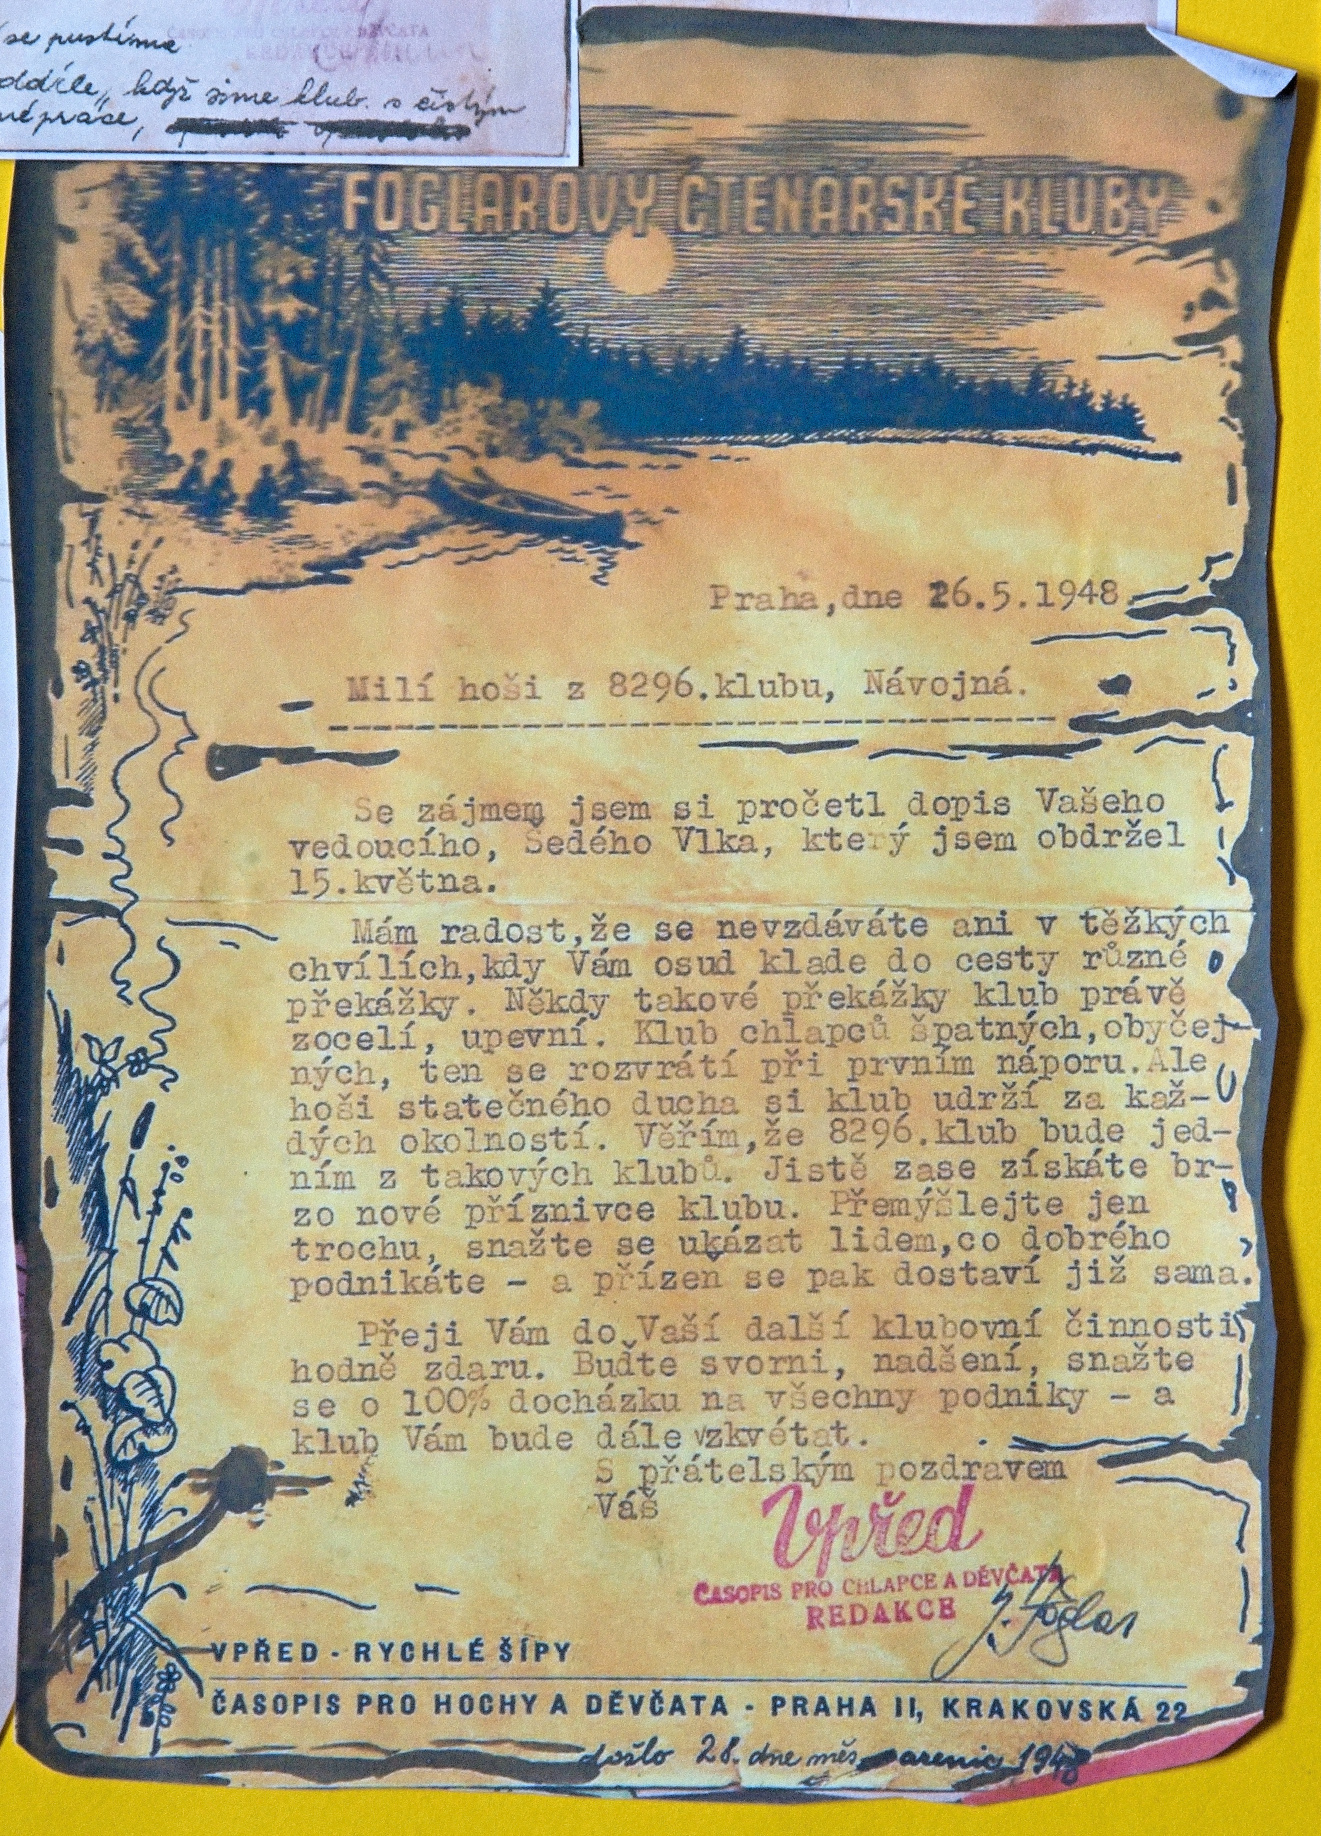 se pustíme
oddíle, když jsme klub s čistým
né práce,
ČASOPIS PRO CHLAPCE A DĚVČATA
REDAKCE
FOGLAROVY ČTENÁŘSKÉ KLUBY
Praha,dne 26.5.1948.
Milí hoši z 8296.klubu, Návojná.
Se zájmem jsem si pročetl dopis Vašeho
vedoucího, Šedého Vlka, který jsem obdržel
15.května.
Mám radost,že se nevzdáváte ani v těžkých
chvílích,kdy Vám osud klade do cesty různé
překážky. Někdy takové překážky klub právě
zocelí, upevní. Klub chlapců špatných,obyčej-
ných, ten se rozvrátí při prvním náporu.Ale
hoši statečného ducha si klub udrží za kaž-
dých okolností. Věřím,že 8296.klub bude jed-
ním z takových klubů. Jistě zase získáte br-
zo nové příznivce klubu. Přemýšlejte jen
trochu, snažte se ukázat lidem,co dobrého
podnikáte - a přízeň se pak dostaví již sama.
Přeji Vám do Vaší další klubovní činnosti
hodně zdaru. Buďte svorni, nadšení, snažte
se o 100% docházku na všechny podniky - a
klub Vám bude dále vzkvétat.
S přátelským pozdravem
Váš
Vpřed
ČASOPIS PRO CHLAPCE A DĚVČATA
REDAKCE
J. Foglar
VPŘED - RYCHLÉ ŠÍPY
ČASOPIS PRO HOCHY A DĚVČATA - PRAHA II, KRAKOVSKÁ 22
došlo 28. dne měs. 1948